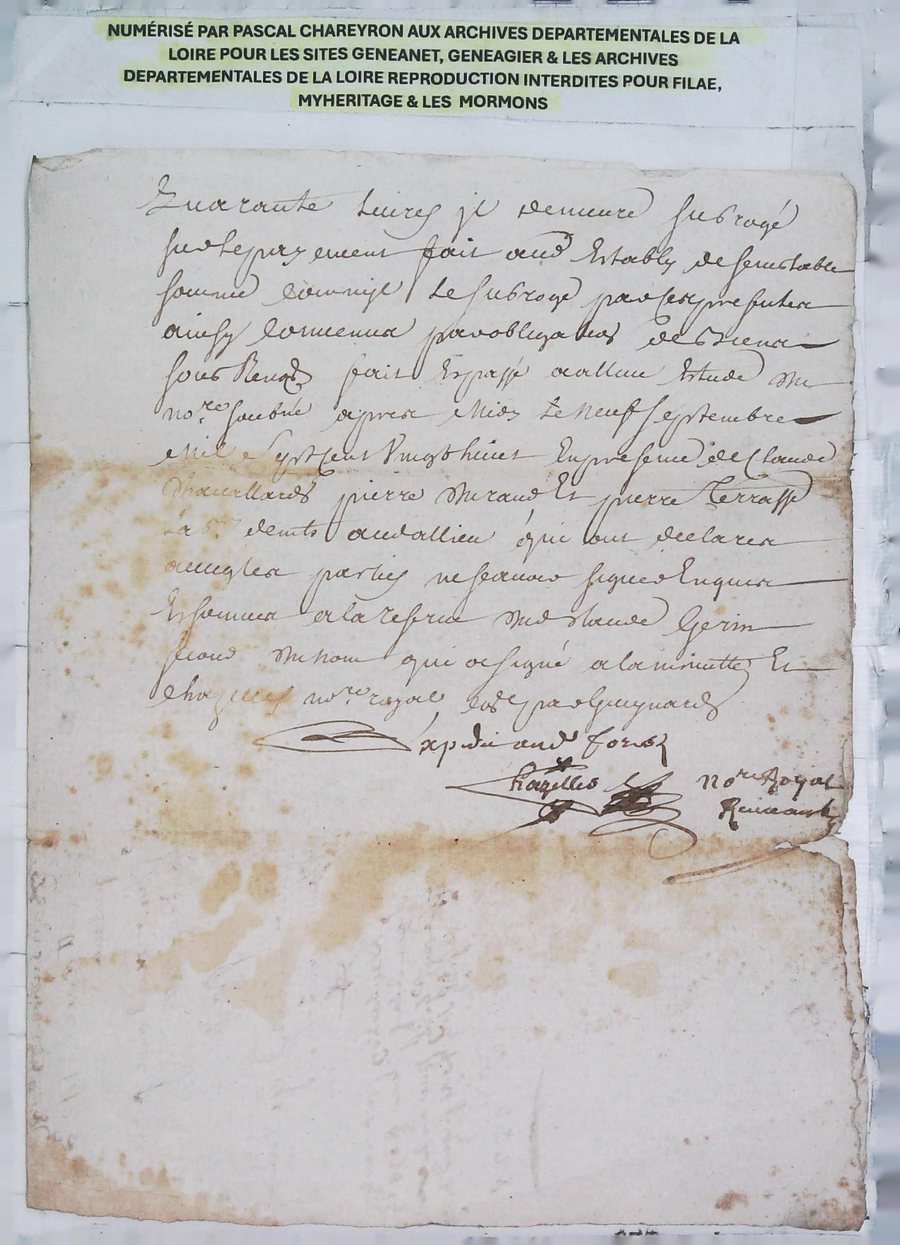 NUMÉRISÉ PAR PASCAL CHAREYRON AUX ARCHIVES DEPARTEMENTALES DE LA
LOIRE POUR LES SITES GENEANET, GENEAGIER & LES ARCHIVES
DEPARTEMENTALES DE LA LOIRE REPRODUCTION INTERDITES POUR FILAE,
MYHERITAGE & LES MORMONS
Quarante livres il demeure subrogé
payement fait aud Estably de semblable
somme comme il le subroge par ces presentes
ainsy convenu par obligaons de biens
sous Renons fait Et passé a allieu Estude du
nore soubné apres Midy Le neuf Septembre
Mil Sept Cent Vingt huict En presence de Claude
pierre Et pierre Terrasse
aud allieu qui ont declarés
avec les parties ne scavoir signer Enquis
Et sommés a la reserve dud Claude Gerin
second du nom qui a signé a la minutte Et
Chazelles nore royal par Guignard
Expedié aud Tony
Chazelles nore Royal